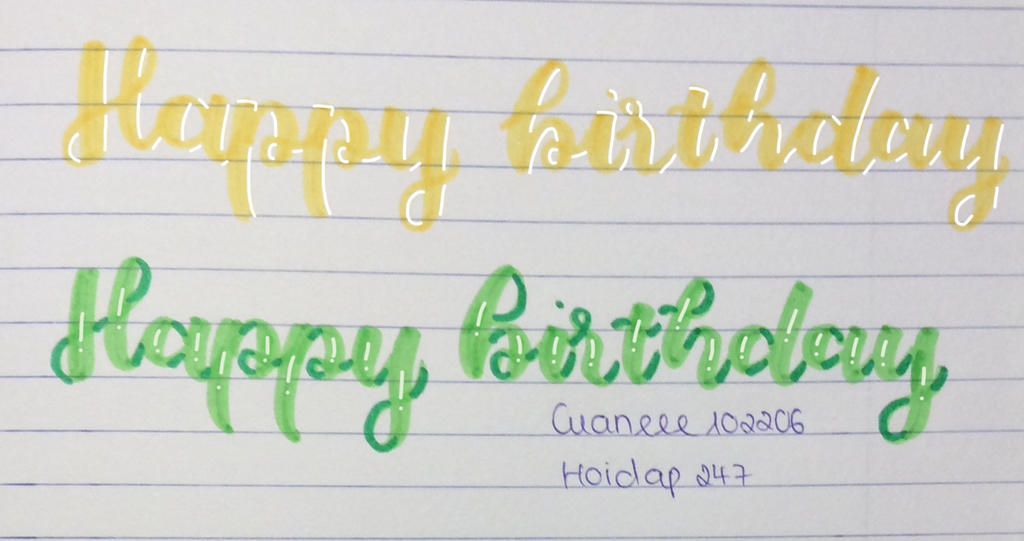 Happy birthday
Happy birthday
Cuaneee 102206
Hoidap 247